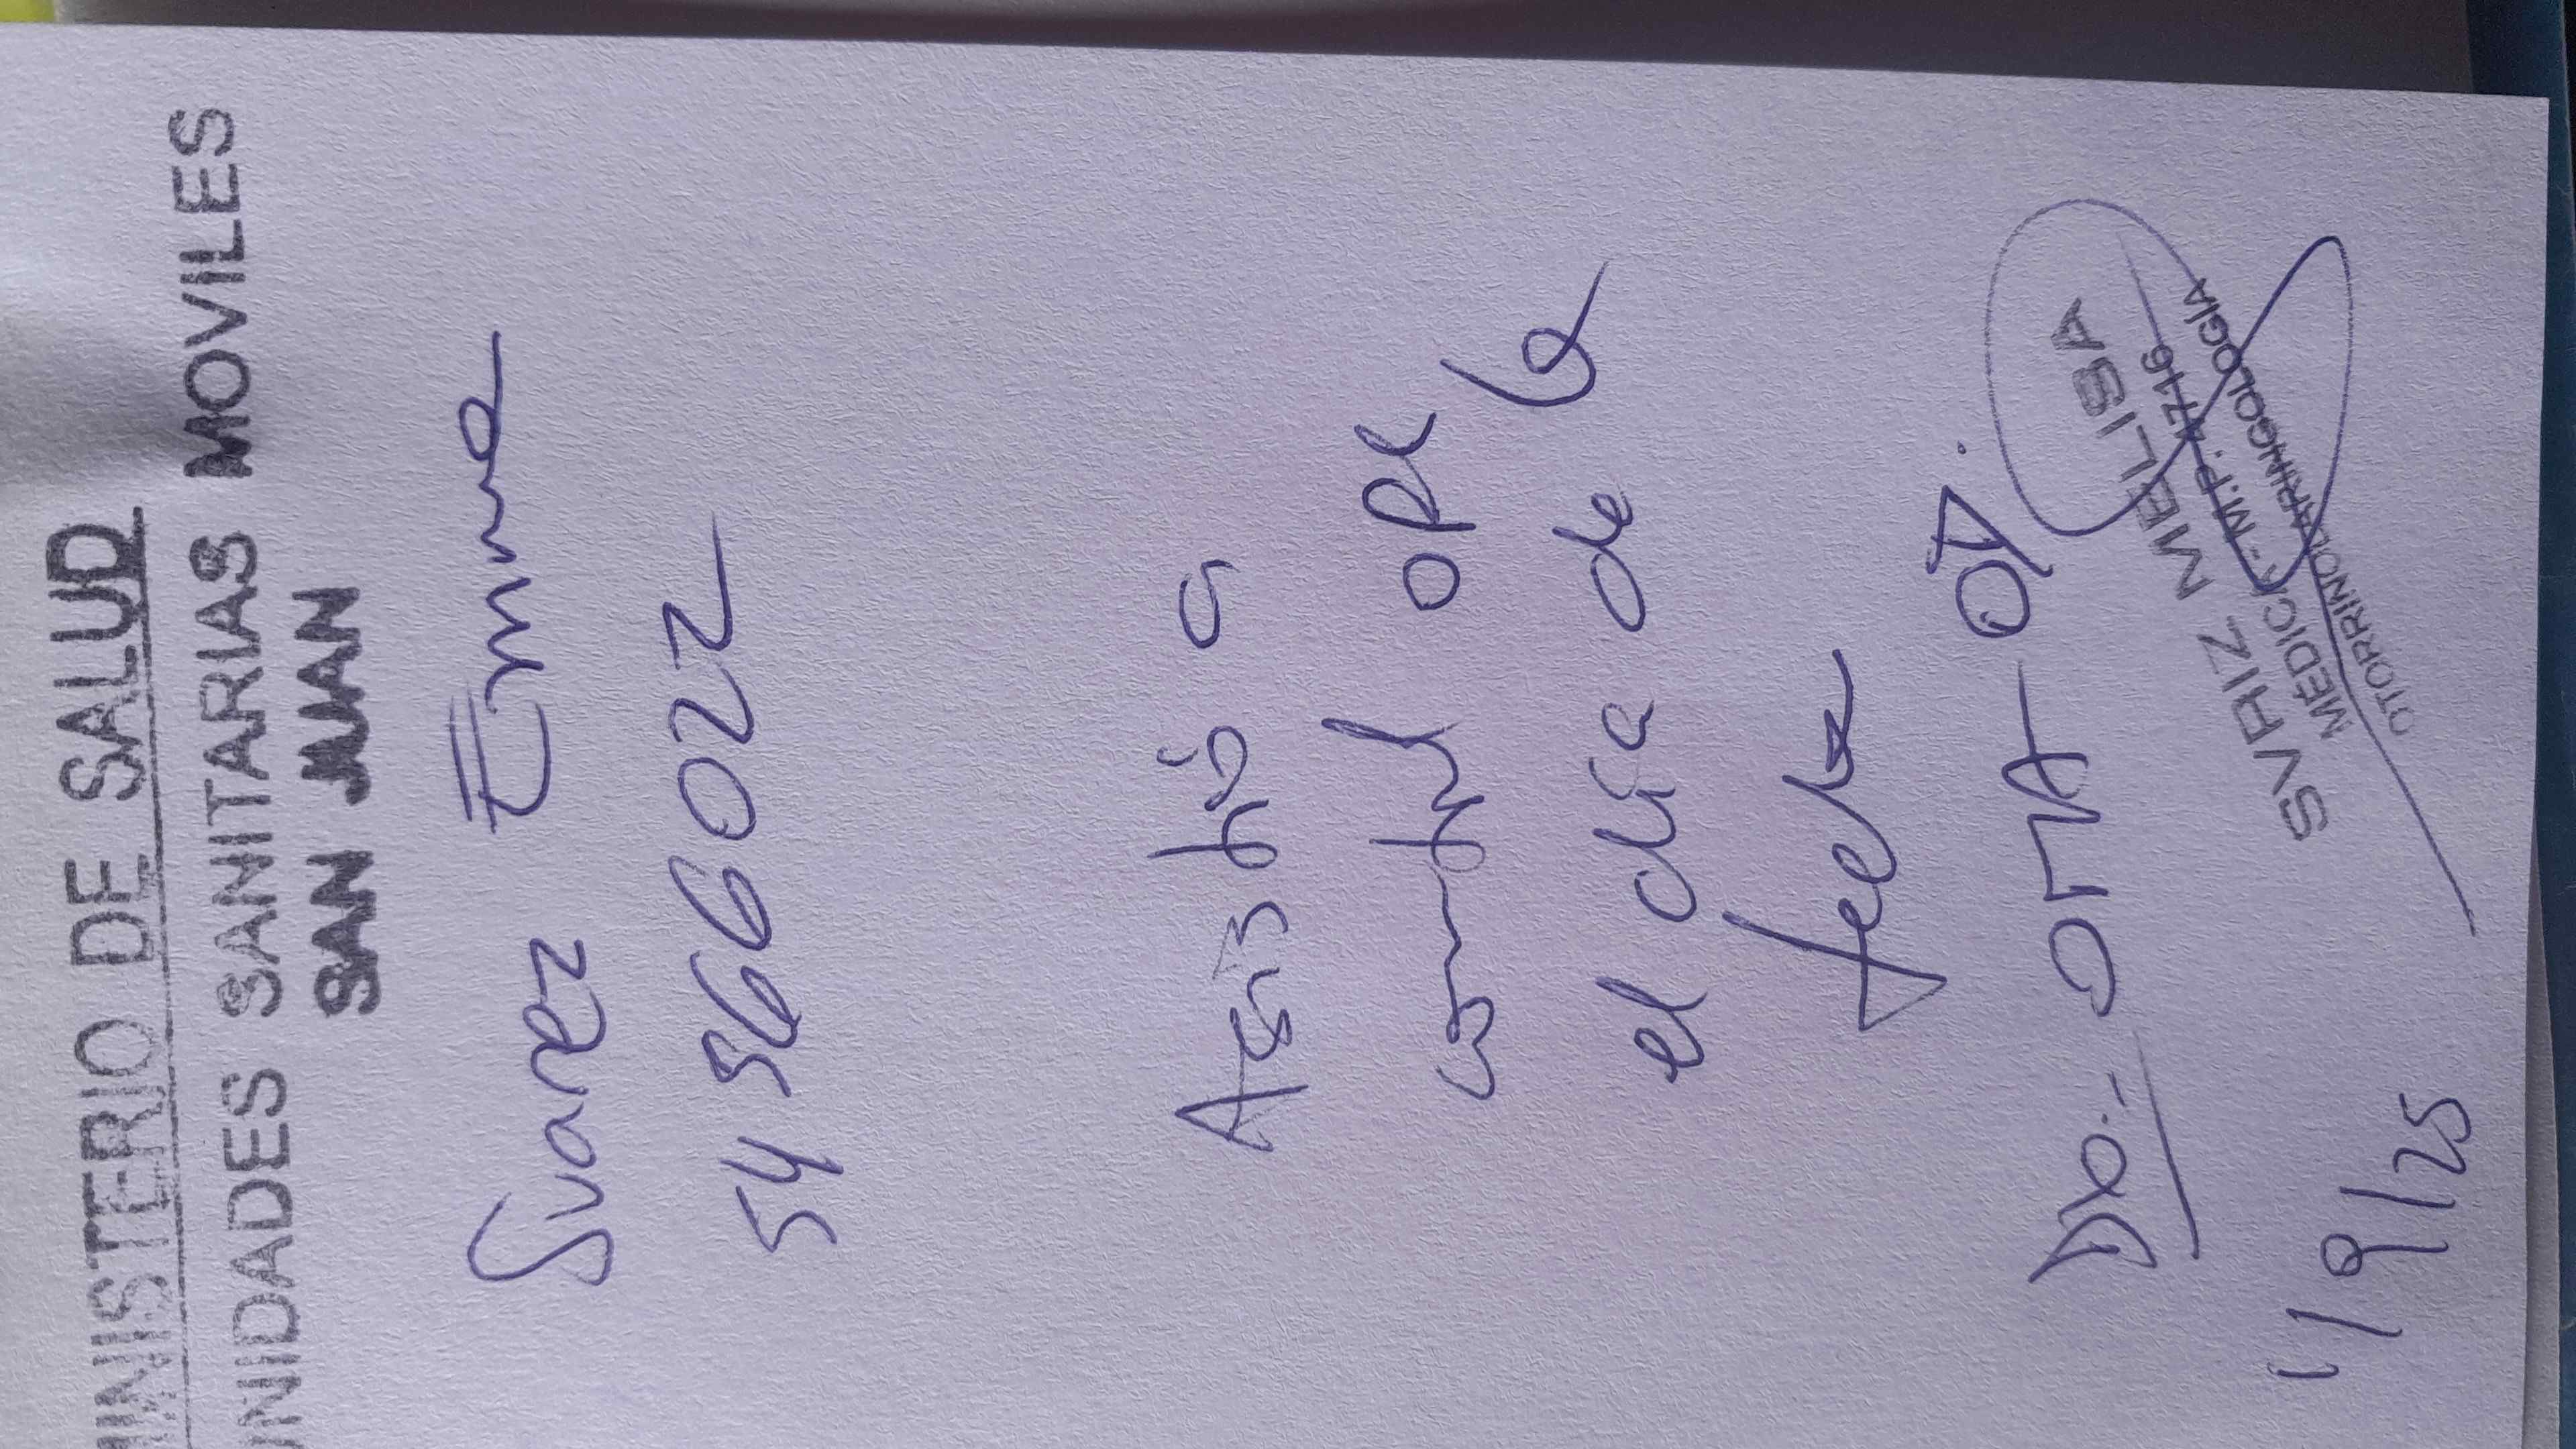 MINISTERIO DE SALUD
UNIDADES SANITARIAS MOVILES
SAN JUAN
Suarez Emma
54 566 022
Asistió a
control ORL
el día de la
fecha
DX:- OMA OD.
SVRIZ MELISA
MÉDICA - M.P. 4716
OTORRINOLARINGOLOGÍA
1/9/25